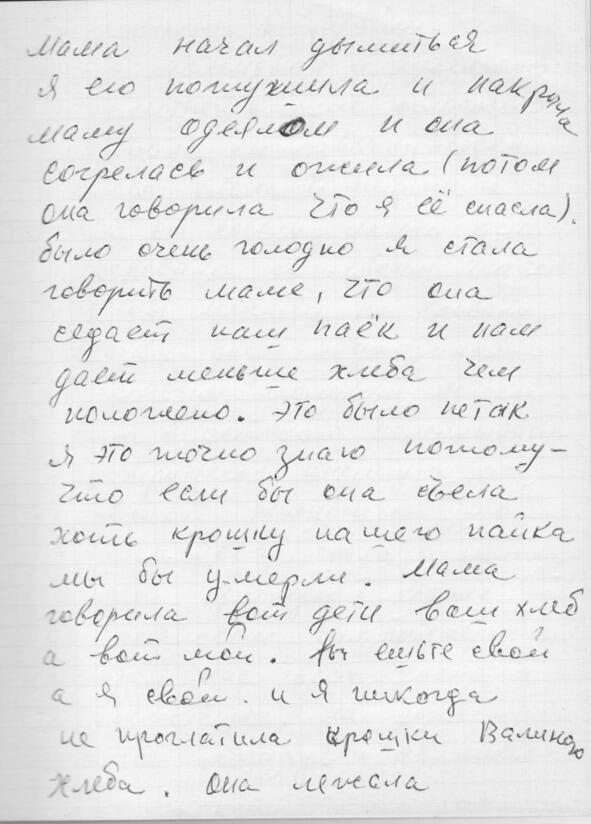 мама начал дымиться
я его потушила и накрыла
маму одеялом и она
согрелась и ожила (потом
она говорила что я её спасла).
было очень голодно я стала
говорить маме, что она
седает наш паёк и нам
дает меньше хлеба чем
положено. это было нетак
я это точно знаю потому-
что если бы она съела
хоть крошку нашего пайка
мы бы умерли. мама
говорила вот дети ваш хлеб
а вот мой. Вы ешьте свой
а я свой. и я никогда
не проглатила крошки Валиного
хлеба. она лежала